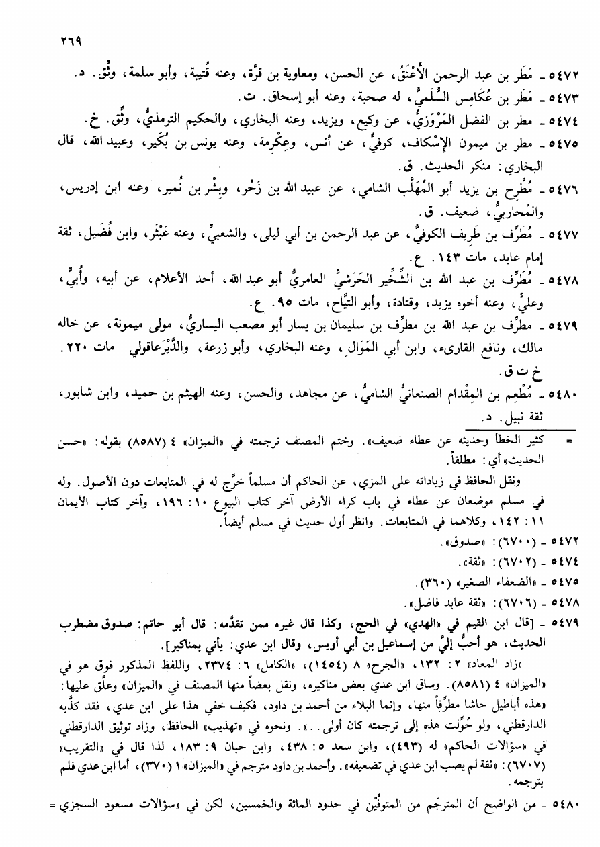 ٢٦٩
٥٤٧٢ ـ مَطَر بن عبد الرحمن الأَعْنَقُ، عن الحسن، ومعاوية بن قرَّة، وعنه قُتيبة، وأبو سلمة، وثُق. د.
٥٤٧٣ ـ مَطَر بن عُكَامِس السُّلَميُّ، له صحبة، وعنه أبو إسحاق. ت.
٥٤٧٤ ـ مطر بن الفضل المَرْوَزيُّ، عن وكيع، ويزيد، وعنه البخاري، والحكيم الترمذيُّ، وثُق. خ.
٥٤٧٥ ـ مطر بن ميمون الإسْكاف، كوفيٌّ، عن أنس، وعِكْرمة، وعنه يونس بن بُكَير، وعبيد الله، قال
البخاري: منكر الحديث. ق.
٥٤٧٦ ـ مُطَّرِح بن يزيد أبو المُهَلَّب الشامي، عن عبيد الله بن زَحْر، وبِشْر بن نُمير، وعنه ابن إدريس،
والمُحاربيُّ، ضعيف. ق.
٥٤٧٧ ـ مُطَرِّف بن طَرِيف الكوفيُّ، عن عبد الرحمن بن أبي ليلى، والشعبيِّ، وعنه عَبْثَر، وابن فُضَيل، ثقة
إمام عابد، مات ١٤٣. ع.
٥٤٧٨ ـ مُطَرِّف بن عبد الله بن الشِّخِّير الحَرَشيُّ العامريُّ أبو عبد الله، أحد الأعلام، عن أبيه، وأُبيٍّ،
وعليٍّ، وعنه أخوه يزيد، وقتادة، وأبو التيَّاح، مات ٩٥. ع.
٥٤٧٩ ـ مطرِّف بن عبد الله بن مطرِّف بن سليمان بن يسار أبو مصعب اليساريُّ، مولى ميمونة، عن خاله
مالك، ونافع القارىء، وابن أبي المَوَالِ، وعنه البخاري، وأبو زرعة، والدَّيْرعاقولي مات ٢٢٠.
خ ت ق.
٥٤٨٠ ـ مُطْعِم بن المِقْدام الصنعانيُّ الشاميُّ، عن مجاهد، والحسن، وعنه الهيثم بن حميد، وابن شابور،
ثقة نبيل. د.
= كثير الخطأ وحديثه عن عطاء ضعيف». وختم المصنف ترجمته في «الميزان» ٤ (٨٥٨٧) بقوله: «حسن
الحديث» أي: مطلقاً.
ونقل الحافظ في زياداته على المزي، عن الحاكم أن مسلماً خرَّج له في المتابعات دون الأصول. وله
في مسلم موضعان عن عطاء في باب كراء الأرض آخر كتاب البيوع ١٠: ١٩٦، وآخر كتاب الأيمان
١١: ١٤٢، وكلاهما في المتابعات. وانظر أول حديث في مسلم أيضاً.
٥٤٧٢ ـ (٦٧٠٠): «صدوق».
٥٤٧٤ ـ (٦٧٠٢): «ثقة».
٥٤٧٥ ـ «الضعفاء الصغير» (٣٦٠).
٥٤٧٨ ـ (٦٧٠٦): «ثقة عابد فاضل».
٥٤٧٩ ـ [قال ابن القيم في «الهدي» في الحج، وكذا قال غيره ممن تقدَّمه: قال أبو حاتم: صدوق مضطرب
الحديث، هو أحبُّ إليَّ من إسماعيل بن أبي أويس، وقال ابن عدي: يأتي بمناكير].
«زاد المعاد» ٢: ١٣٢، «الجرح» ٨ (١٤٥٤)، «الكامل» ٦: ٢٣٧٤، واللفظ المذكور فوق هو في
«الميزان» ٤ (٨٥٨١). وساق ابن عدي بعض مناكيره، ونقل بعضاً منها المصنف في «الميزان» وعلَّق عليها:
«هذه أباطيل حاشا مطرِّفاً منها، وإنما البلاء من أحمد بن داود، فكيف خفي هذا على ابن عدي، فقد كذَّبه
الدارقطني، ولو حُوِّلت هذه إلى ترجمته كان أولى...». ونحوه في «تهذيب» الحافظ، وزاد توثيق الدارقطني
في «سؤالات الحاكم» له (٤٩٣)، وابن سعد ٥: ٤٣٨، وابن حبان ٩: ١٨٣، لذا قال في «التقريب»
(٦٧٠٧): «ثقة لم يصب ابن عدي في تضعيفه». وأحمد بن داود مترجم في «الميزان» ١ (٣٧٠)، أما ابن عدي فلم
يترجمه.
٥٤٨٠ ـ من الواضح أن المترجَم من المتوفَّين في حدود المائة والخمسين، لكن في «سؤالات مسعود السجزي =